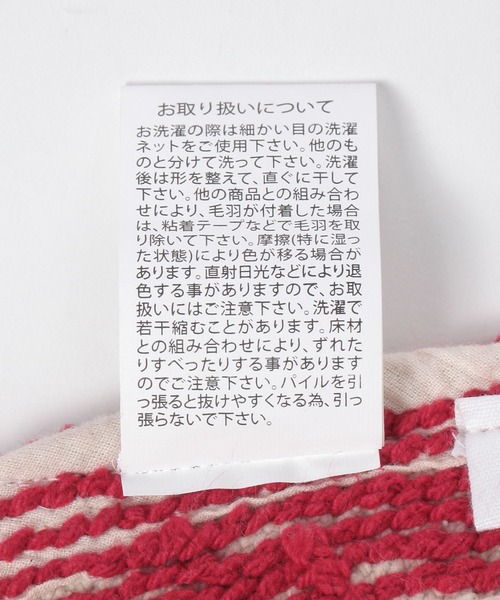 お取り扱いについて
お洗濯の際は細かい目の洗濯
ネットをご使用下さい。他のも
のと分けて洗って下さい。洗濯
後は形を整えて、直ぐに干して
下さい。他の商品との組み合わ
せにより、毛羽が付着した場合
は、粘着テープなどで毛羽を取
り除いて下さい。摩擦(特に湿っ
た状態)により色が移る場合が
あります。直射日光などにより退
色する事がありますので、お取
扱いにはご注意下さい。洗濯で
若干縮むことがあります。床材
との組み合わせにより、ずれた
りすべったりする事があります
のでご注意下さい。パイルを引
っ張ると抜けやすくなる為、引っ
張らないで下さい。